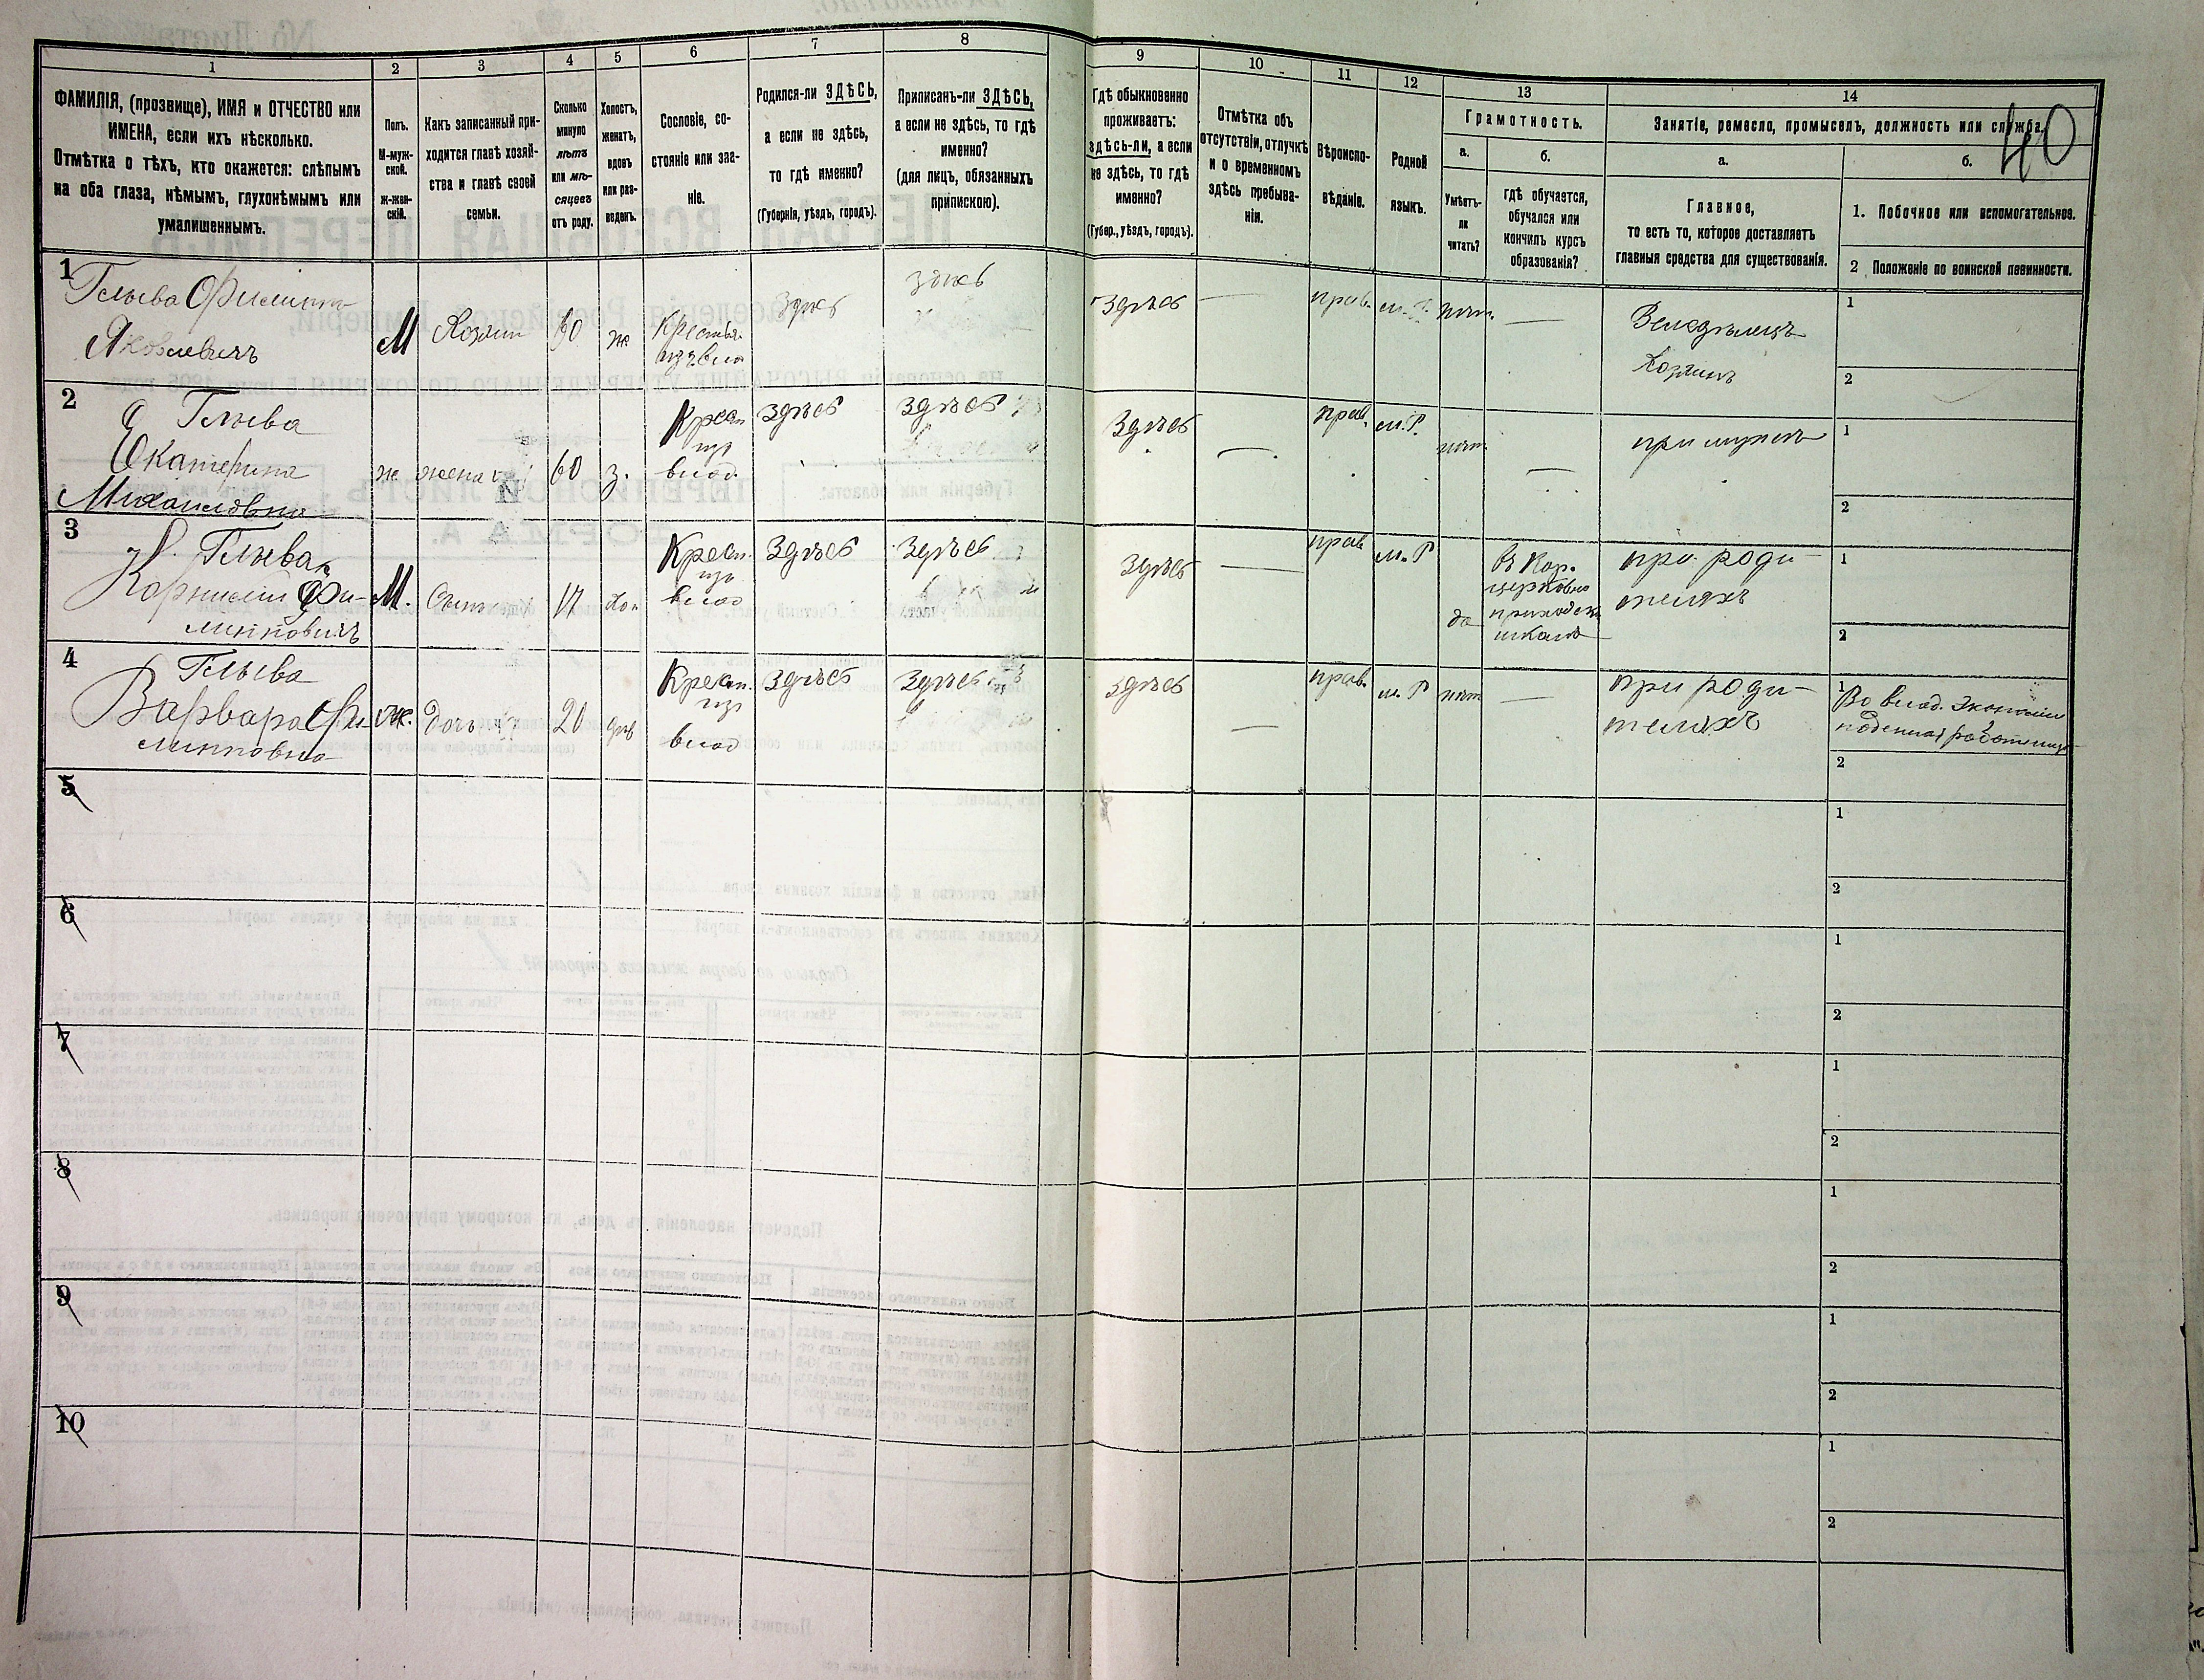 40
1 2 3 4 5 6 7 8 9 10 11 12 13 14
ФАМИЛІЯ, (прозвище), ИМЯ и ОТЧЕСТВО или
ИМЕНА, если ихъ нѣсколько.
Отмѣтка о тѣхъ, кто окажется: слѣпымъ
на оба глаза, нѣмымъ, глухонѣмымъ или
умалишеннымъ.
Полъ.
М-муж-
ской.
ж-жен-
скій.
Какъ записанный при-
ходится главѣ хозяй-
ства и главѣ своей
семьи.
Сколько
минуло
лѣтъ
или мѣ-
сяцевъ
отъ роду.
Холостъ,
женатъ,
вдовъ
или раз-
веденъ.
Сословіе, со-
стояніе или зва-
ніе.
Родился-ли ЗДѢСЬ,
а если не здѣсь,
то гдѣ именно?
(Губернія, уѣздъ, городъ).
Приписанъ-ли ЗДѢСЬ,
а если не здѣсь, то гдѣ
именно?
(для лицъ, обязанныхъ
припискою).
Гдѣ обыкновенно
проживаетъ:
здѣсь-ли, а если
не здѣсь, то гдѣ
именно?
(Губер., уѣздъ, городъ).
Отмѣтка объ
отсутствіи, отлучкѣ
и о временномъ
здѣсь пребыва-
ніи.
Вѣроиспо-
вѣданіе.
Родной
языкъ.
Грамотность.
а.
Умѣетъ-
ли
читать?
б.
гдѣ обучается,
обучался или
кончилъ курсъ
образованія?
Занятіе, ремесло, промыселъ, должность или служба.
а.
Главное,
то есть то, которое доставляетъ
главныя средства для существованія.
б.
1. Побочное или вспомогательное.
2 Положеніе по воинской повинности.
1
Глыва Филиппъ
Яковлевичъ
М
Хозяин
60
ж
Крестьян.
изъ влад
Здѣсь
здѣсь
здѣсь
—
прав.
м. Р.
нѣт.
—
Земледѣлецъ
хозяинъ
1
2
2
Глыва
Екатерина
Михаиловна
ж
жена
60
з.
Крест
из
влад
Здѣсь
Здѣсь
Здѣсь
—
прав.
м. Р.
нѣт.
—
при мужѣ
1
2
3
Глыва
Корнилій Фи-
липповичъ
М.
Сынъ
17
хо.
Крест.
из
влад
Здѣсь
Здѣсь
Здѣсь
—
прав
м. Р
да
въ Кор.
церковно
приходск
школѣ
при роди-
теляхъ
1
2
4
Глыва
Варвара Фи-
липповна
ж.
дочь
20
дѣв
Крест.
из
влад
Здѣсь
Здѣсь
здѣсь
—
прав.
м. Р
нѣт
—
при роди-
теляхъ
1
Во влад. Экономіи
поденная работница
2
5
1
2
6
1
2
7
1
2
8
1
2
9
1
2
10
1
2